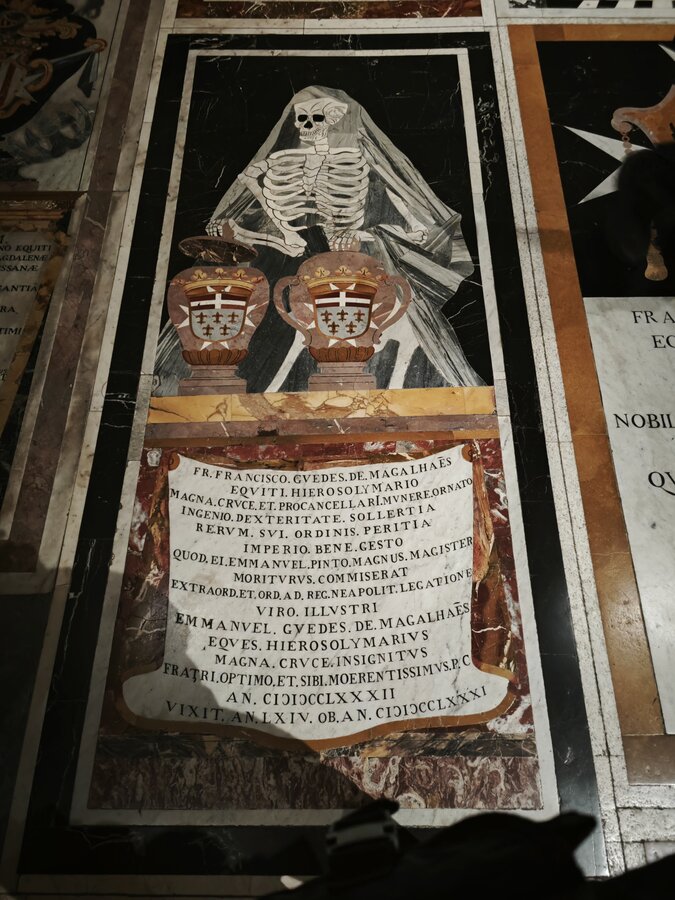 FR. FRANCISCO. GVEDES. DE. MAGALHAẼS
EQVITI. HIEROSOLYMARIO
MAGNA. CRVCE. ET. PROCANCELLARĪ. MVNERE. ORNATO
INGENIO. DEXTERITATE. SOLLERTIA
RERVM. SVI. ORDINIS. PERITIA
IMPERIO. BENE. GESTO
QVOD. EI. EMMANVEL. PINTO. MAGNVS. MAGISTER
MORITVRVS. COMMISERAT
EXTRAORD. ET. ORD. AD. REG. NEAPOLIT. LEGATIONE
VIRO. ILLVSTRI
EMMANVEL. GVEDES. DE. MAGALHAẼS
EQVES. HIEROSOLYMARIVS
MAGNA. CRVCE. INSIGNITVS
FRATRI. OPTIMO, ET. SIBI. MOERENTISSIMVS. P. C
AN. CIƆIƆCCLXXXII
VIXIT. AN. LXIV. OB. AN. CIƆIƆCCLXXXI
NO EQUITI
AGDALENÆ
OSSANÆ
GANTIA
RA
TIMI
FRA
EQ
NOBIL
QV